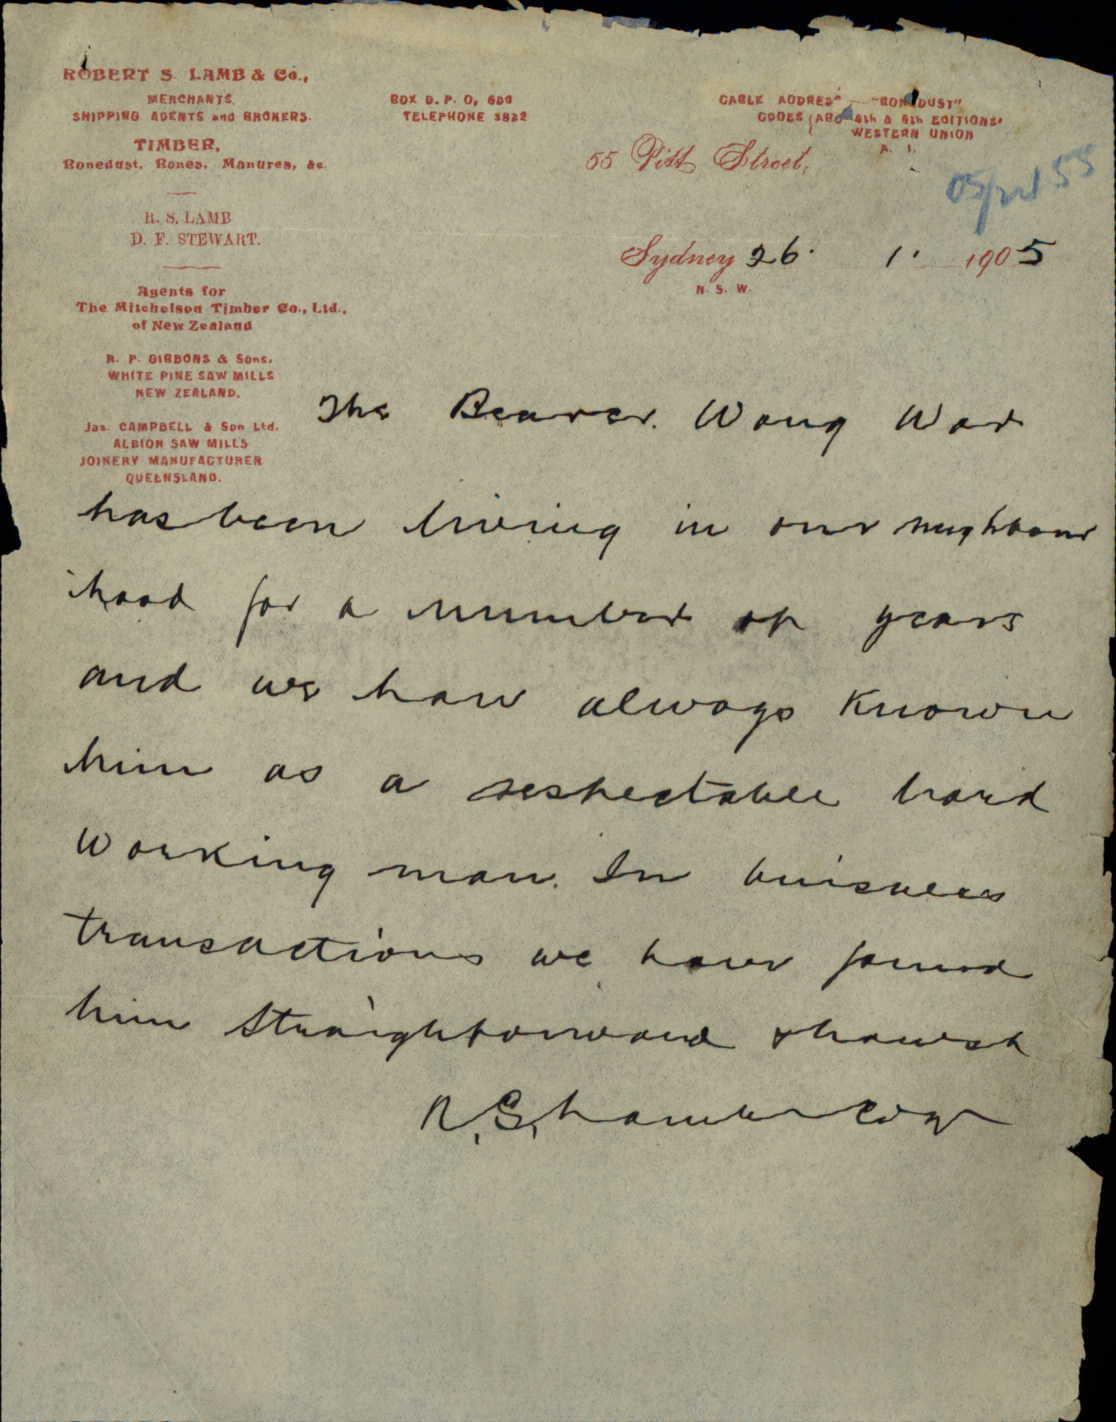 ROBERT S. LAMB & Co.,
MERCHANTS,
SHIPPING AGENTS and BROKERS.
TIMBER,
Bonedust, Bones, Manures, &c
R. S. LAMB
D. F. STEWART.
Agents for
The Mitchelson Timber Co., Ltd.,
of New Zealand
R. P. GIBBONS & Sons,
WHITE PINE SAW MILLS
NEW ZEALAND.
Jas. CAMPBELL & Son Ltd.
ALBION SAW MILLS
JOINERY MANUFACTURER
QUEENSLAND.
BOX G. P. O,
TELEPHONE
CABLE ADDRESS "BONEDUST"
CODES ABC 4th & 5th EDITIONS
WESTERN UNION
A. I.
55 Pitt Street,
55
Sydney 26. 1. 1905
N. S. W.
The Bearer. Wong War
has been living in our neighbour
hood for a number of years
and we have always known
him as a respectable hard
working man. In buisness
transactions we have found
him straightforward & honest
R. S. Lamb & Co